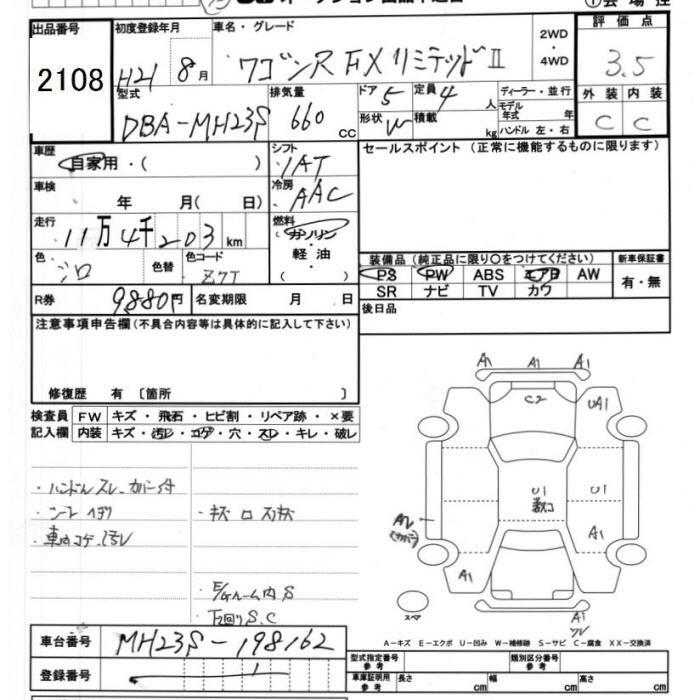 出品番号
2108
初度登録年月
H21 8月
車名・グレード
ワゴンR FXリミテッドⅡ
2WD
・
4WD
評価点
3.5
外装 内装
C C
型式
DBA-MH23S
排気量
660 cc
ドア 5
定員 4 人
形状 W
積載 kg
ディーラー・並行
モデル年式 年
ハンドル 左・右
車歴
自家用・( )
シフト
IAT
車検
年 月( 日)
冷房
AAC
走行
11万4千203km
燃料
(ガソリン・軽油( )
色
シロ
色替
色コード
Z7T
R券
9880円
名変期限 月 日
セールスポイント (正常に機能するものに限ります)
装備品 (純正品に限り○をつけてください)
新車保証書
PS PW ABS エアB AW
SR ナビ TV カワ
有・無
後日品
注意事項申告欄(不具合内容等は具体的に記入して下さい)
修復歴 有 〔箇所 〕
検査員記入欄
FW キズ・飛石・ヒビ割・リペア跡・×要
内装 キズ・汚レ・コゲ・穴・スレ・キレ・破レ
・ハンドルスレ・カバー付
・シートヘタリ
・車内コゲ・汚レ
・E/Gルーム内S
・下回りS.C
A1 A1 A1
C2
UA1
U1
U1
A1
A1
A1
スペア
A-キズ E-エクボ U-凹み W-補修跡 S-サビ C-腐食 XX-交換済
車台番号
MH23S-198162
登録番号
型式指定番号 参考
類別区分番号 参考
車庫証明用 参考
長さ cm
幅 cm
高さ cm